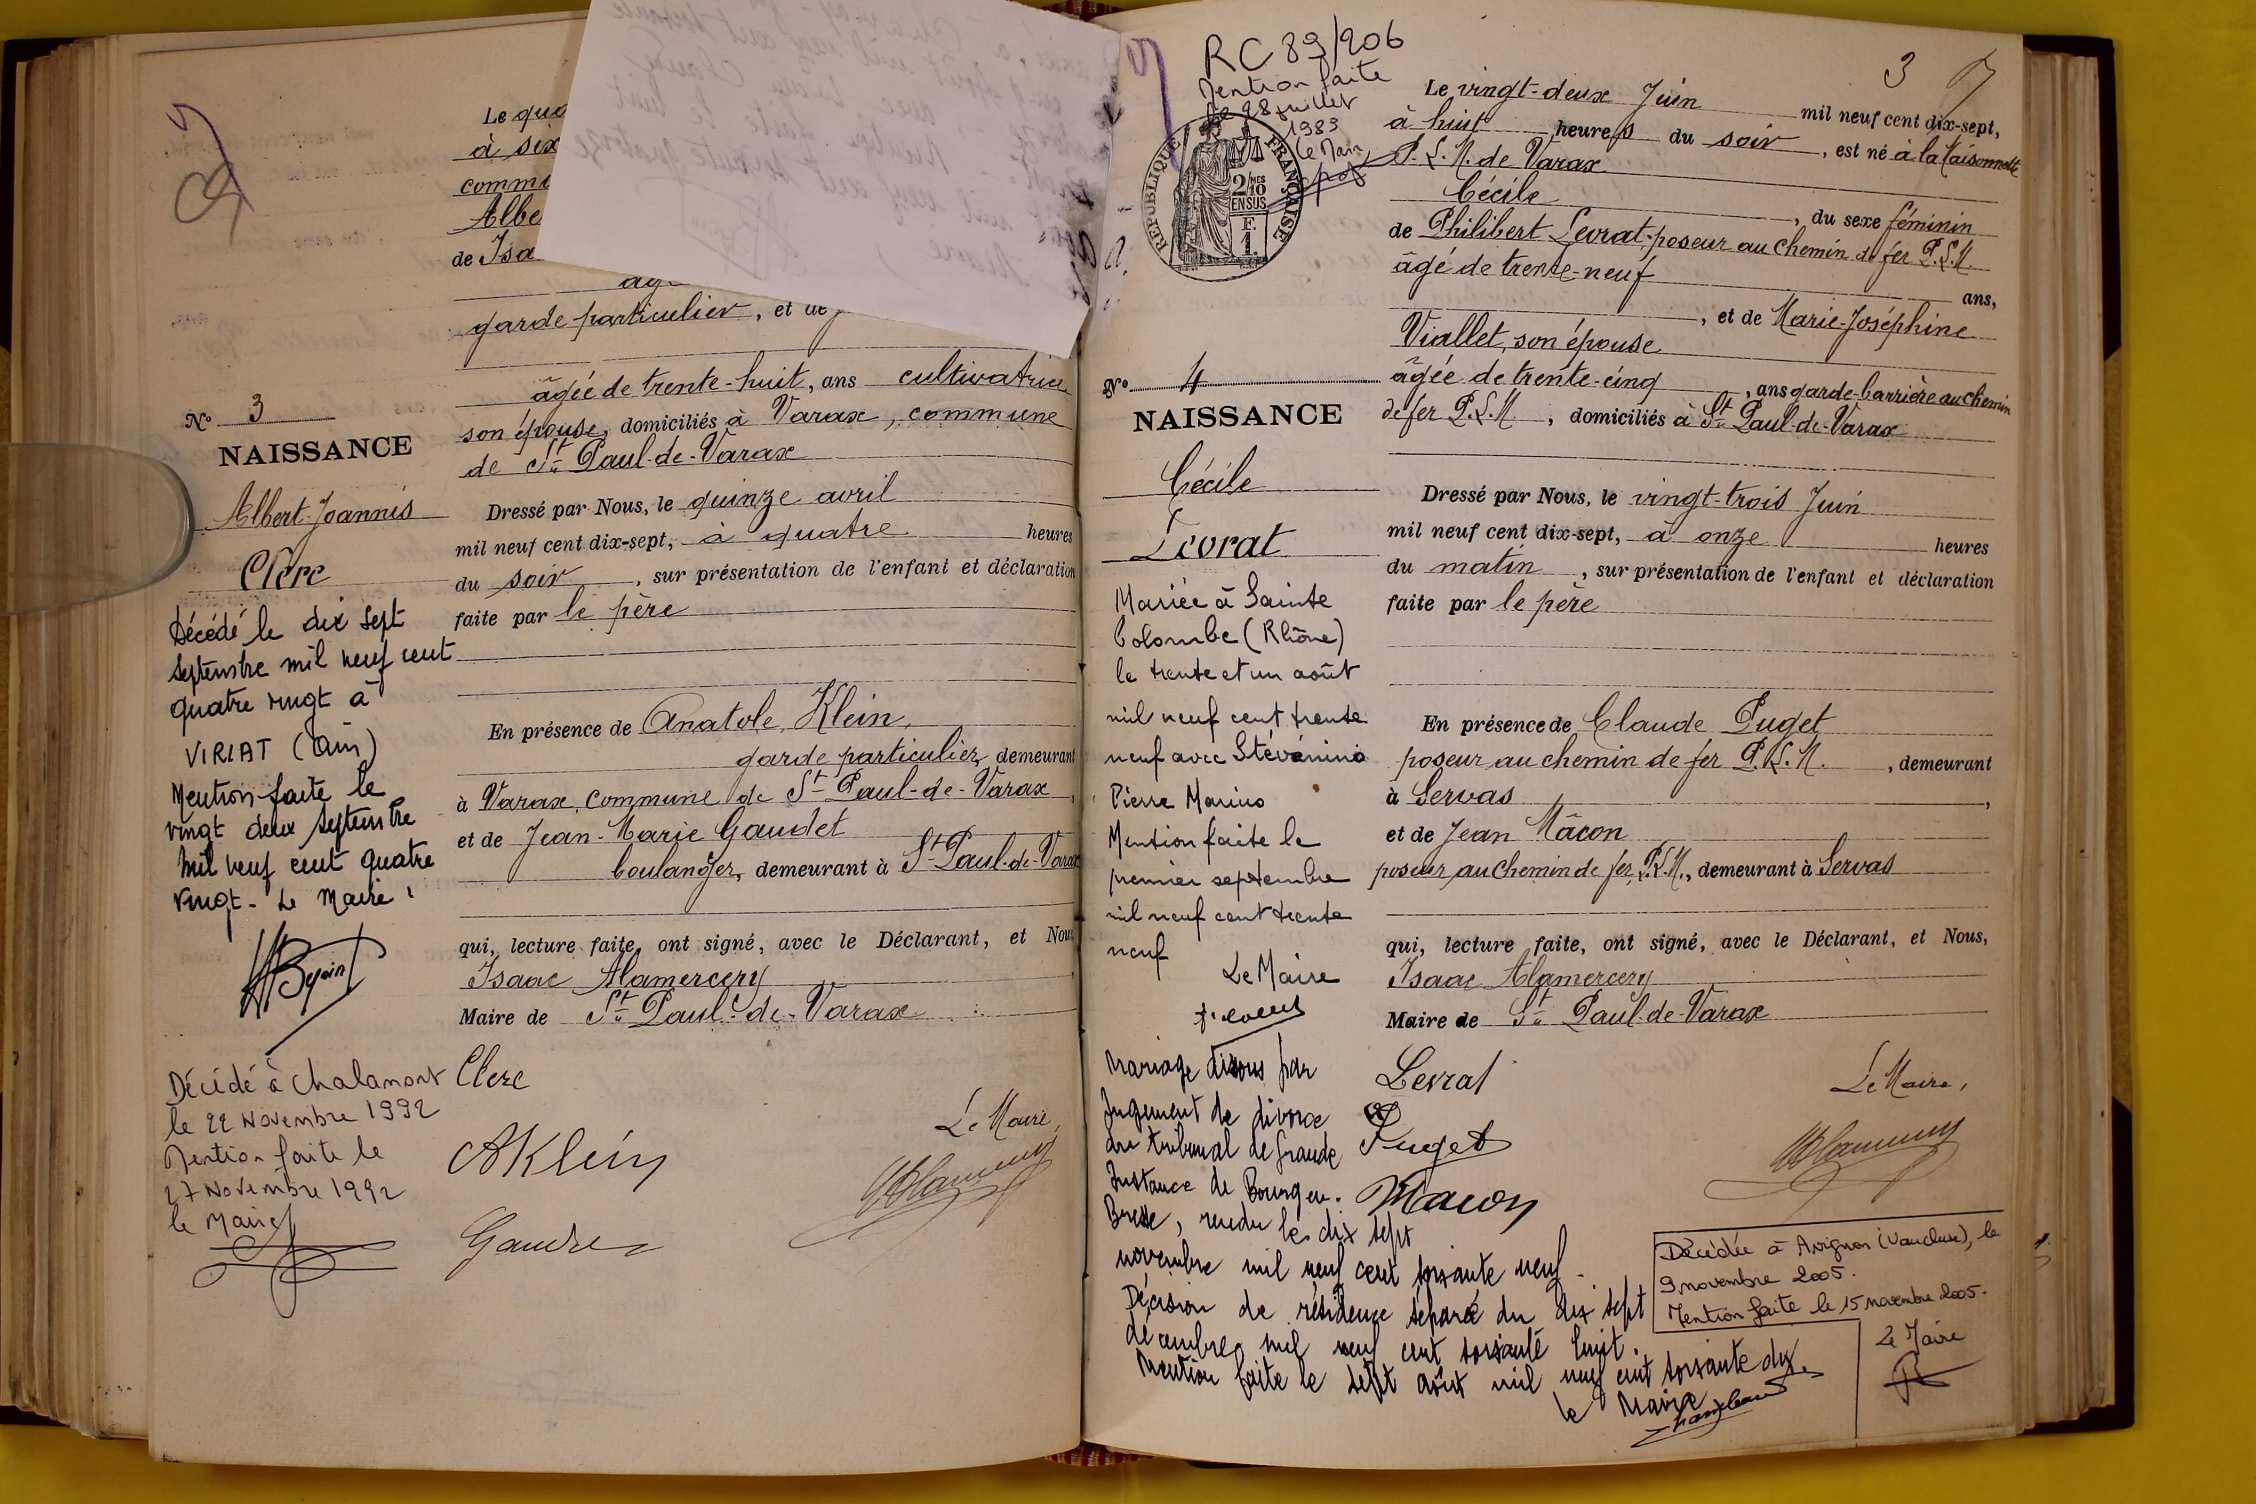 Le qua
à six
commu
Albe
de Isa
garde particulier, et de
âgée de trente-huit, ans cultivatrice
son épouse, domiciliés à Varax, commune
de St Paul-de-Varax
No 3
NAISSANCE
Albert-Joannis
Clerc
Décédé le dix sept
septembre mil neuf cent
quatre vingt à
VIRIAT (Ain)
Mention faite le
vingt deux septembre
mil neuf cent quatre
vingt - Le Maire
Décédé à Chalamont
le 22 Novembre 1992
Mention faite le
27 Novembre 1992
le Maire
Dressé par Nous, le quinze avril
mil neuf cent dix-sept, à quatre heures
du soir, sur présentation de l'enfant et déclaration
faite par le père
En présence de Anatole Klein,
garde particulier, demeurant
à Varax, commune de St Paul-de-Varax,
et de Jean-Marie Gaudet
boulanger, demeurant à St Paul-de-Varax
qui, lecture faite, ont signé, avec le Déclarant, et Nous
Isaac Alamercery
Maire de St Paul-de-Varax
Clerc
Le Maire,
AKlein
Gaudet
3
RC 89/206
Mention faite
le 28 juillet
1989
Le Maire
RÉPUBLIQUE FRANÇAISE
2/10MES
EN SUS
F.
1.
Le vingt-deux Juin mil neuf cent dix-sept,
à huit heures du soir, est né à la Maisonnette
P.L.M. de Varax
Cécile, du sexe féminin
de Philibert Levrat, poseur au chemin de fer P.L.M.
âgé de trente-neuf ans,
, et de Marie-Joséphine
Viallet, son épouse
âgée de trente-cinq, ans garde-barrière au chemin
de fer P.L.M, domiciliés à St Paul-de-Varax
No 4
NAISSANCE
Cécile
Levrat
Mariée à Sainte
Colombe (Rhône)
le trente et un août
mil neuf cent trente
neuf avec Stévénino
Pierre Marino
Mention faite le
premier septembre
mil neuf cent trente
neuf
Le Maire
Mariage dissous par
Jugement de divorce
du tribunal de Grande
Instance de Bourg en
Bresse, rendu le dix sept
novembre mil neuf cent soixante neuf.
Décision de résidence séparée du dix sept
décembre mil neuf cent soixante huit.
Mention faite le sept août mil neuf cent soixante dix.
Le Maire
Dressé par Nous, le vingt-trois Juin
mil neuf cent dix-sept, à onze heures
du matin, sur présentation de l'enfant et déclaration
faite par le père
En présence de Claude Puget
poseur au chemin de fer P.L.M., demeurant
à Servas,
et de Jean Mâcon
poseur au chemin de fer P.L.M., demeurant à Servas
qui, lecture faite, ont signé, avec le Déclarant, et Nous,
Isaac Alamercery
Maire de St Paul-de-Varax
Levrat
Le Maire,
Puget
Macon
Décédée à Avignon (Vaucluse), le
9 novembre 2005.
Mention faite le 15 novembre 2005.
Le Maire